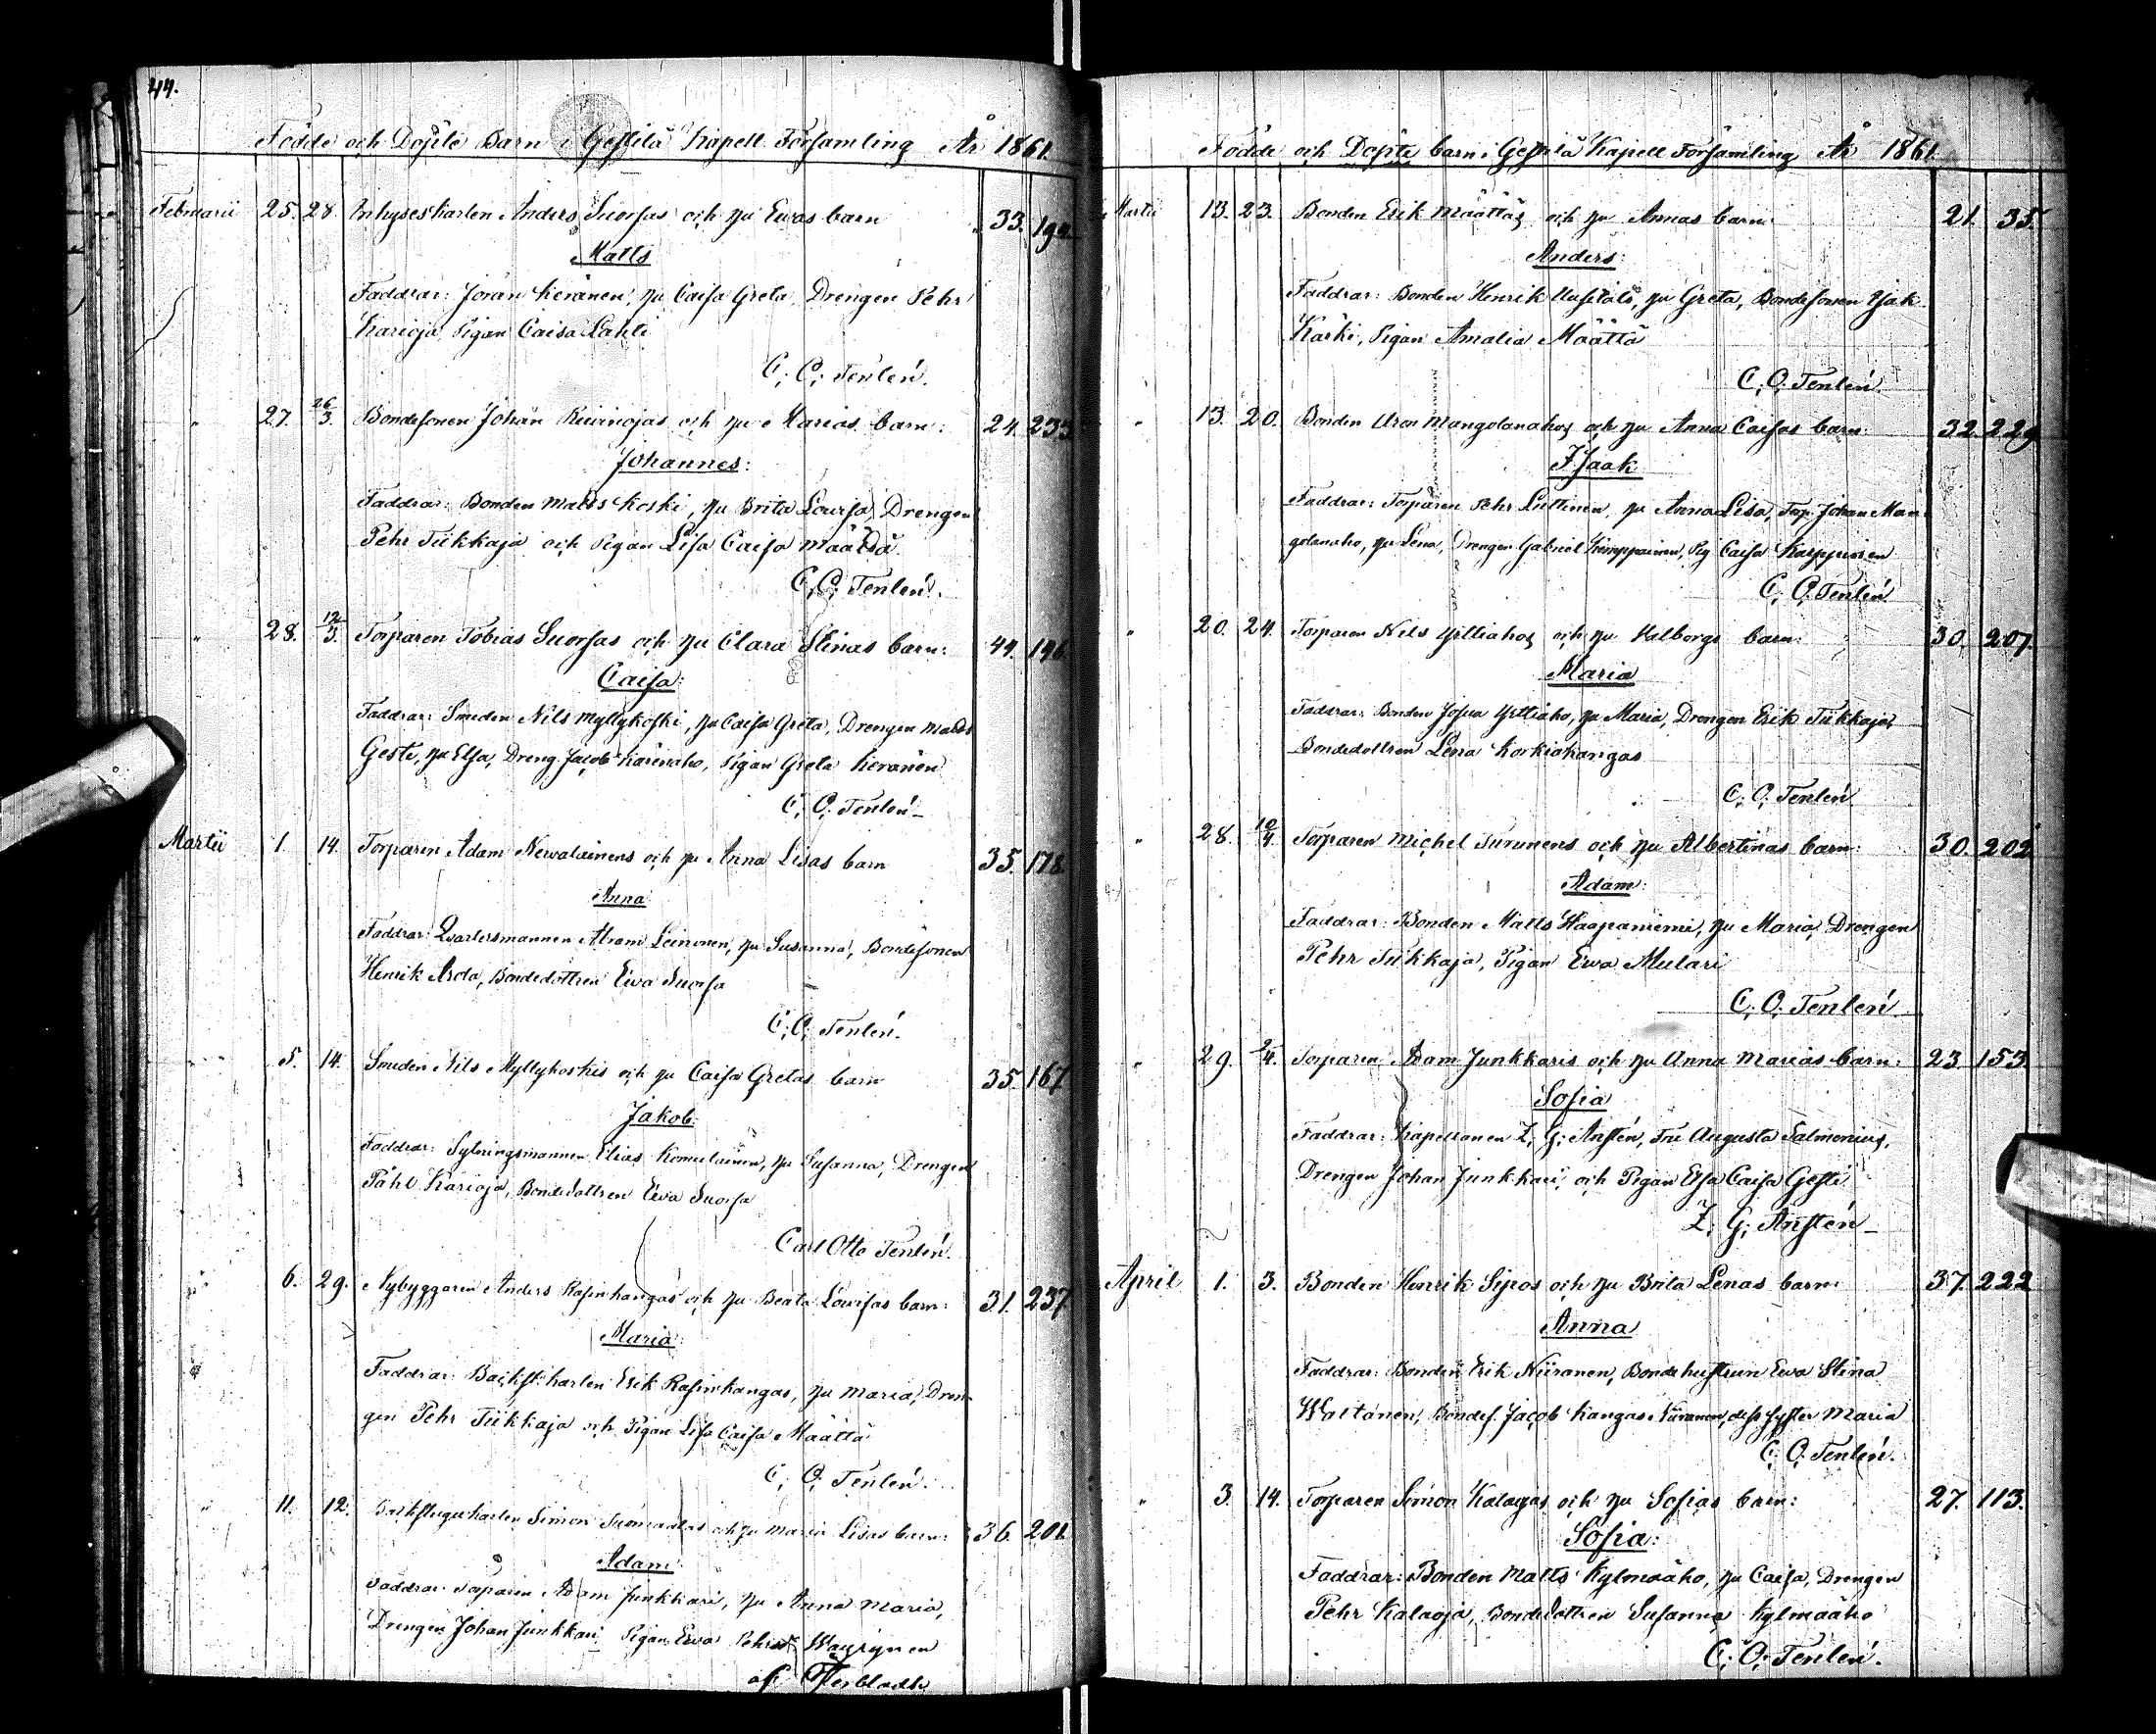 44.
Födde och Döpte Barn i Gestilä Kapell Församling År 1861.
Februarii 25. 28. Inhyseskarlen Anders Suorsas och hu Ewas barn 33. 190.
Matts
Faddrar: Jöran Keränen, hu Caisa Greta, Drengen Pehr
Karioja, Pigan Caisa Lahti
C: O: Tenlén.
" 27. 26/3. Bondesonen Johan Kiwiniojas och hu Marias barn: 24. 233
Johannes:
Faddrar: Bonden Matts Koski, hu Brita Lovisa, Drengen
Pehr Tikkaja och Pigan Lisa Caisa Määttä
C: O: Tenlén.
" 28. 12/3. Torparen Tobias Suorsas och hu Clara Stinas barn: 44. 196
Caisa:
Faddrar: Smeden Nils Myllykoski, hu Caisa Greta, Drengen Matts
Gesti, hu Elsa, Dreng. Jacob Kärenaho, Pigan Greta Keränen
C: O: Tenlén
Martii 1. 14. Torparen Adam Newalainens och hu Anna Lisas barn 35. 178.
Anna
Faddrar: Qvartersmannen Abram Leinonen, hu Susanna, Bondesonen
Henrik Arola, Bondedottren Ewa Suorsa
C: O: Tenlén.
5. 14. Smeden Nils Myllykoskis och hu Caisa Gretas barn 35. 167
Jakob:
Faddrar: Elias Komulainen, hu Susanna, Drengen
Påhl Karioja, Bondedottren Ewa Suorsa
Carl Otto Tenlén.
" 6. 29. Nybyggaren Anders Rasinkangas och hu Beata Lowisas barn: 31. 237.
Maria:
Faddrar: Backst: karlen Erik Rasinkangas, hu Maria, Dren-
gen Pehr Tikkaja och Pigan Lisa Caisa Määttä
C: O: Tenlén.
" 11. 12. Backstugukarlen Simon och hu Maria Lisas barn: 36. 201.
Adam
Faddrar: Torparen Adam Junkkari, hu Anna Maria,
Drengen Johan Junkkari Pigan Ewa Waurynen
af
Födde och Döpte barn i Gestilä Kapell Församling År 1861.
Martii 13. 23. Bonden Erik Määttäs och hu Annas barn: 21. 35.
Anders:
Faddrar: Bonden Henrik Uusitalo, hu Greta, Bondesonen Isak
Karki, Pigan Amalia Määttä
C: O: Tenlén
" 13. 20. Bonden Aron Mangolanahos och hu Anna Caisas barn: 32. 229
Isaak
Faddrar: Torparen Pehr Luttinen, hu Anna Lisa, Torp. Johan Man-
golanaho, hu Lena, Drengen Gabriel Kemppainen, Pig Caisa Karppinen
C: O: Tenlén
" 20. 24. Torparen Nils Yrttiahos och hu Walborgs barn: 30. 207.
Maria
Faddrar: Bonden Josua Yrttiaho, hu Maria, Drengen Erik Tikkaja,
Bondedottren Lena Korkiakangas
C: O: Tenlén
" 28. 10/4. Torparen Michel Turunens och hu Albertinas barn: 30. 202
Adam:
Faddrar: Bonden Matts Haapaniemi, hu Maria, Drengen
Pehr Tikkaja, Pigan Ewa Mulari
C: O: Tenlén
" 29. 2/4. Torparen Adam Junkkaris och hu Anna Marias barn: 23 153.
Sofia
Faddrar: Kapellanen Z: G: Anstén, Fru Augusta Salmonius,
Drengen Johan Junkkari, och Pigan Elsa Caisa Gesti
Z: G: Anstén
April 1. 3. Bonden Henrik Sipos och hu Brita Lenas barn: 37. 222
Anna
Faddrar: Bonden Erik Niiranen, Bondehustrun Ewa Stina
Waltanen, Bondes. Jacob Kangas Niiranen, dess syster Maria
C: O: Tenlén.
" 3. 14. Torparen Simon Kalaojas och hu Sofias barn: 27. 113.
Sofia:
Faddrar: Bonden Matts Kylmäaho, hu Caisa, Drengen
Pehr Kalaoja, Bondedottren Susanna Kylmäaho
C: O: Tenlén.